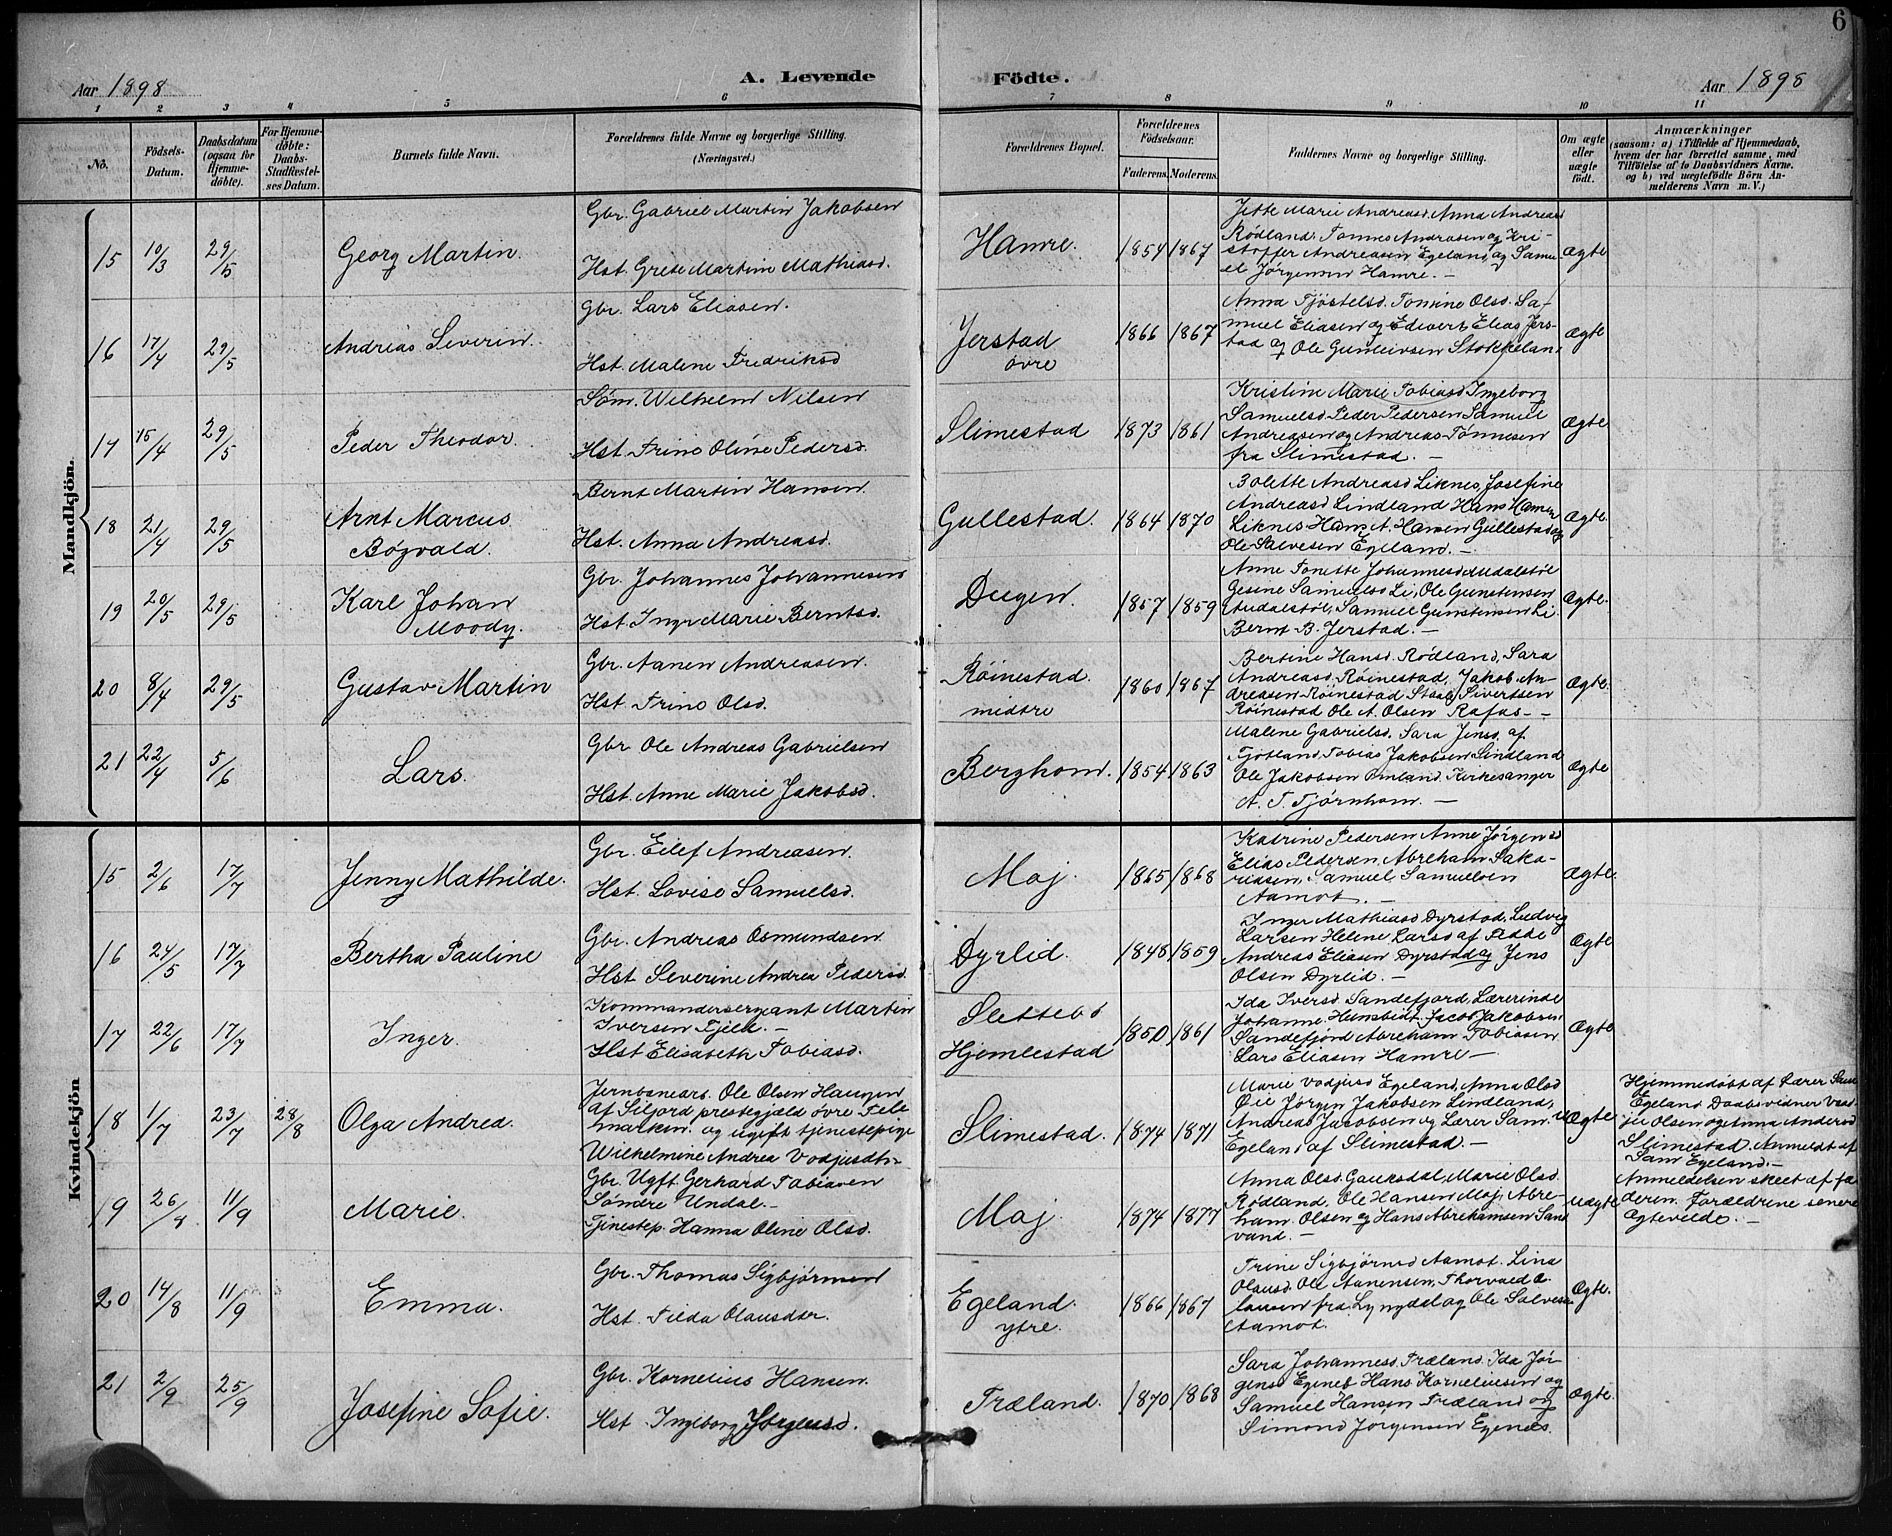 6
Aar 1898
A. Levende
Födte.
Aar 1898
1 2 3 4 5 6 7 8 9 10 11
No.
Födsels-
Datum.
Daabsdatum
(ogsaa for
Hjemme-
döbte).
For Hjemme-
döbte:
Daabs-
Stadfæstel-
ses Datum.
Barnets fulde Navn.
Forældrenes fulde Navne og borgerlige Stilling.
(Næringsvei.)
Forældrenes Bopæl.
Forældrenes
Födselsaar.
Faderens. Moderens.
Faddernes Navne og borgerlige Stilling.
Om ægte
eller
uægte
födt.
Anmærkninger
(saasom: a) i Tilfælde af Hjemmedaab,
hvem der har forrettet samme, med
Tilföielse af to Daabsvidners Navne,
og b) ved uægtefödte Börn An-
melderens Navn m. V.)
Mandkjön.
15 10/3 29/5
Georg Martin.
Gbr. Gabriel Martin Jakobsen
Hst. Grete Martine Mathiasd.
Hamre.
1854 1867
Jette Marie Andreasd. Anna Andreasd
Rødland. Tønnes Andreasen og Kri-
stoffer Andreasen Egeland, og Samu-
el Jørgensen Hamre. —
Ægte
16 17/4 29/5
Andreas Severin.
Gbr. Lars Eliasen.
Hst. Malene Fredriksd
Jerstad
øvre
1866 1867
Anna Tjøstelsd. Tomine Olsd. Sa-
muel Eliasen og Edvert Elias Jers-
tad og Ole Gunleivsen Stokkelan.
Ægte
17 15/4 29/5
Peder Theodor.
Søm. Wilhelm Nilsen
Hst. Trine Oline Pedersd.
Slimestad
1873 1861
Kristine Marie Tobiasd Ingeborg
Samuelsd Peder Pedersen Samuel
Andreasen og Andreas Tønnesen
fra Slimestad. —
Ægte
18 21/4 29/5
Arnt Marcus
Bøgvald.
Bernt Martin Hansen.
Hst. Anna Andreasd.
Gullestad.
1864 1870
Bolette Andreasd Liknes, Josefine
Andreasd Lindland Hans Hansen
Liknes Hans A. Hansen Gullestad og
Ole Salvesen Egeland. —
Ægte.
19 20/5 29/5
Karl Johan
Moody.
Gbr. Johannes Johannesen
Hst. Ingr Marie Berntsd.
Dugen.
1857 1859
Anne Tonette Johannesd Audalstøl
Gesine Samuelsd Li, Ole Gunstensen
Audalstøl, Samuel Gunstensen Li
Bernt B. Jerstad. —
Ægte.
20 8/4 29/5
Gustav Martin
Gbr. Aanen Andreasen.
Hst. Trine Olsd.
Røinestad.
midtre
1860 1867
Bertine Hansd. Rødland, Sara
Andreasd. Røinestad, Jakob An-
dreasen Røinestad Staale Sivertsen
Røinestad Ole A. Olsen Rafas. —
Ægte.
21 22/4 5/6
Lars.
Gbr Ole Andreas Gabrielsen
Hst. Anne Marie Jakobsd.
Berghom.
1854 1863
Malene Gabrielsd. Sara Jensd. af
Fjotland, Tobias Jakobsen Lindland
Ole Jakobsen Omland. Kirkesanger
A. T. Tjørnhom. —
Ægte
Kvindekjön
15 2/6 17/7
Jenny Mathilde.
Gbr. Eilef Andreasen.
Hst. Lovise Samuelsd.
Moj.
1865 1868
Katrine Pedersen Anne Jørgensd
Elias Pedersen, Abreham Saka-
riasen, Samuel Samuelsen
Aamot. —
Ægte.
16 24/5 17/7
Bertha Pauline
Gbr. Andreas Osmundsen.
Hst Severine Andrea Pedersd.
Dyrlid.
1848 1859
Inger Mathiasd Dyrstad, Ludvig
Larsen Helene Larsd af Fedde
Andreas Eliasen Dyrstad og Jens
Olsen Dyrlid. —
Ægte
17 22/6 17/7
Inger.
Kommandersergeant Martin
Iversen Fjeld. —
Hst Elisabeth Tobiasd.
Slettebø
Hjemlestad
1850 1861
Ida Iversd. Sandefjord, Lærerinde
Johanne Hunsbedt, Jacob Jakobsen
Sandefjord Abreham Tobiasen
Lars Eliasen Hamre —
Ægte.
18 1/7 23/7 28/8
Olga Andrea.
Jernbanearb. Ole Olsen Haugen
af Siljord prestegjæld øvre Tele
marken. og ugift tjenestepige
Wilhelmine Andrea Vodjusdtr.
Slimestad.
1874 1871
Marie Vodjusd Egeland, Anna Olsd
Øie Jørgen Jakobsen Lindland,
Andreas Jacobsen og Lærer Sam.
Egeland af Slimestad —
Uægte
Hjemmedøbt af Lærer Sam
Egeland Daabsvidner Vod-
ju Olsen og Anna Andersd
Slimestad Anmeldt af
Sam Egeland. —
19 26/8 11/9
Marie.
Gbr. Ugft Gerhard Tobiasen
Søndre Undal. —
Tjenestep. Hanna Oline Olsd.
Moj.
1874 1877
Anna Olsd. Gauksdal, Marie Olsd.
Rødland, Ole Hansen Moj, Abre-
ham Olsen og Hans Abrehamsen Sand
vand. —
Uægte
Anmeldelsen skeet af fa
deren. Forældrene senere
Ægteviede. —
20 14/8 11/9
Emma.
Gbr. Thomas Sigbjørnsen
Hst. Tilda Olausdtr.
Egeland.
ytre.
1866 1867
Trine Sigbjørnsd Aamot. Lina
Olausd. Ole Aanensen, Thorvald O-
lausen fra Lyngdal og Ole Salvesen
Aamot.
Ægte.
21 2/9 25/9
Josefine Sofie.
Gbr. Kornelius Hansen.
Hst. Ingeborg Jørgensd.
Træland.
1870 1868
Sara Johannesd. Træland. Ida Jør-
gensd Egenes Hans Korneliusen og
Samuel Hansen Træland og
Simond Jørgensen Egenes.
Ægte.